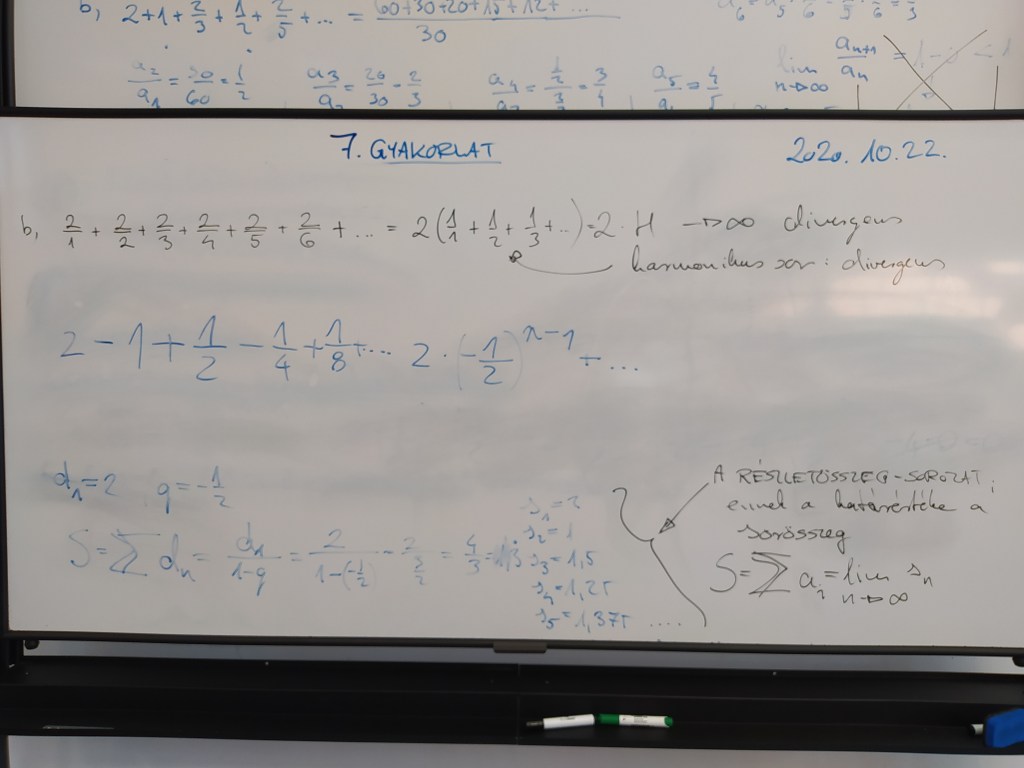 b, 2+1+2/3+1/2+2/5+... = 60+30+20+15+12+.../30
a2/a1 = 30/60 = 1/2 a3/a2 = 20/30 = 2/3 = 3/4 a5 = 4/5 lim n→∞ an+1/an
7. GYAKORLAT 2020. 10. 22.
b, 2/1 + 2/2 + 2/3 + 2/4 + 2/5 + 2/6 + ... = 2(1/1 + 1/2 + 1/3 + ..) = 2·H → ∞ divergens
harmonikus sor: divergens
2 - 1 + 1/2 - 1/4 + 1/8 + ... 2·(-1/2)^(n-1) + ...
d1 = 2 q = -1/2
S = Σ dn = d1/(1-q) = 2/(1-(-1/2)) = 4/3
s1 = 2
s2 = 1
s3 = 1,5
s4 = 1,25
s5 = 1,375 ....
A RÉSZLETÖSSZEG-SOROZAT,
ennek a határértéke a
sorösszeg
S = Σ ai = lim n→∞ sn